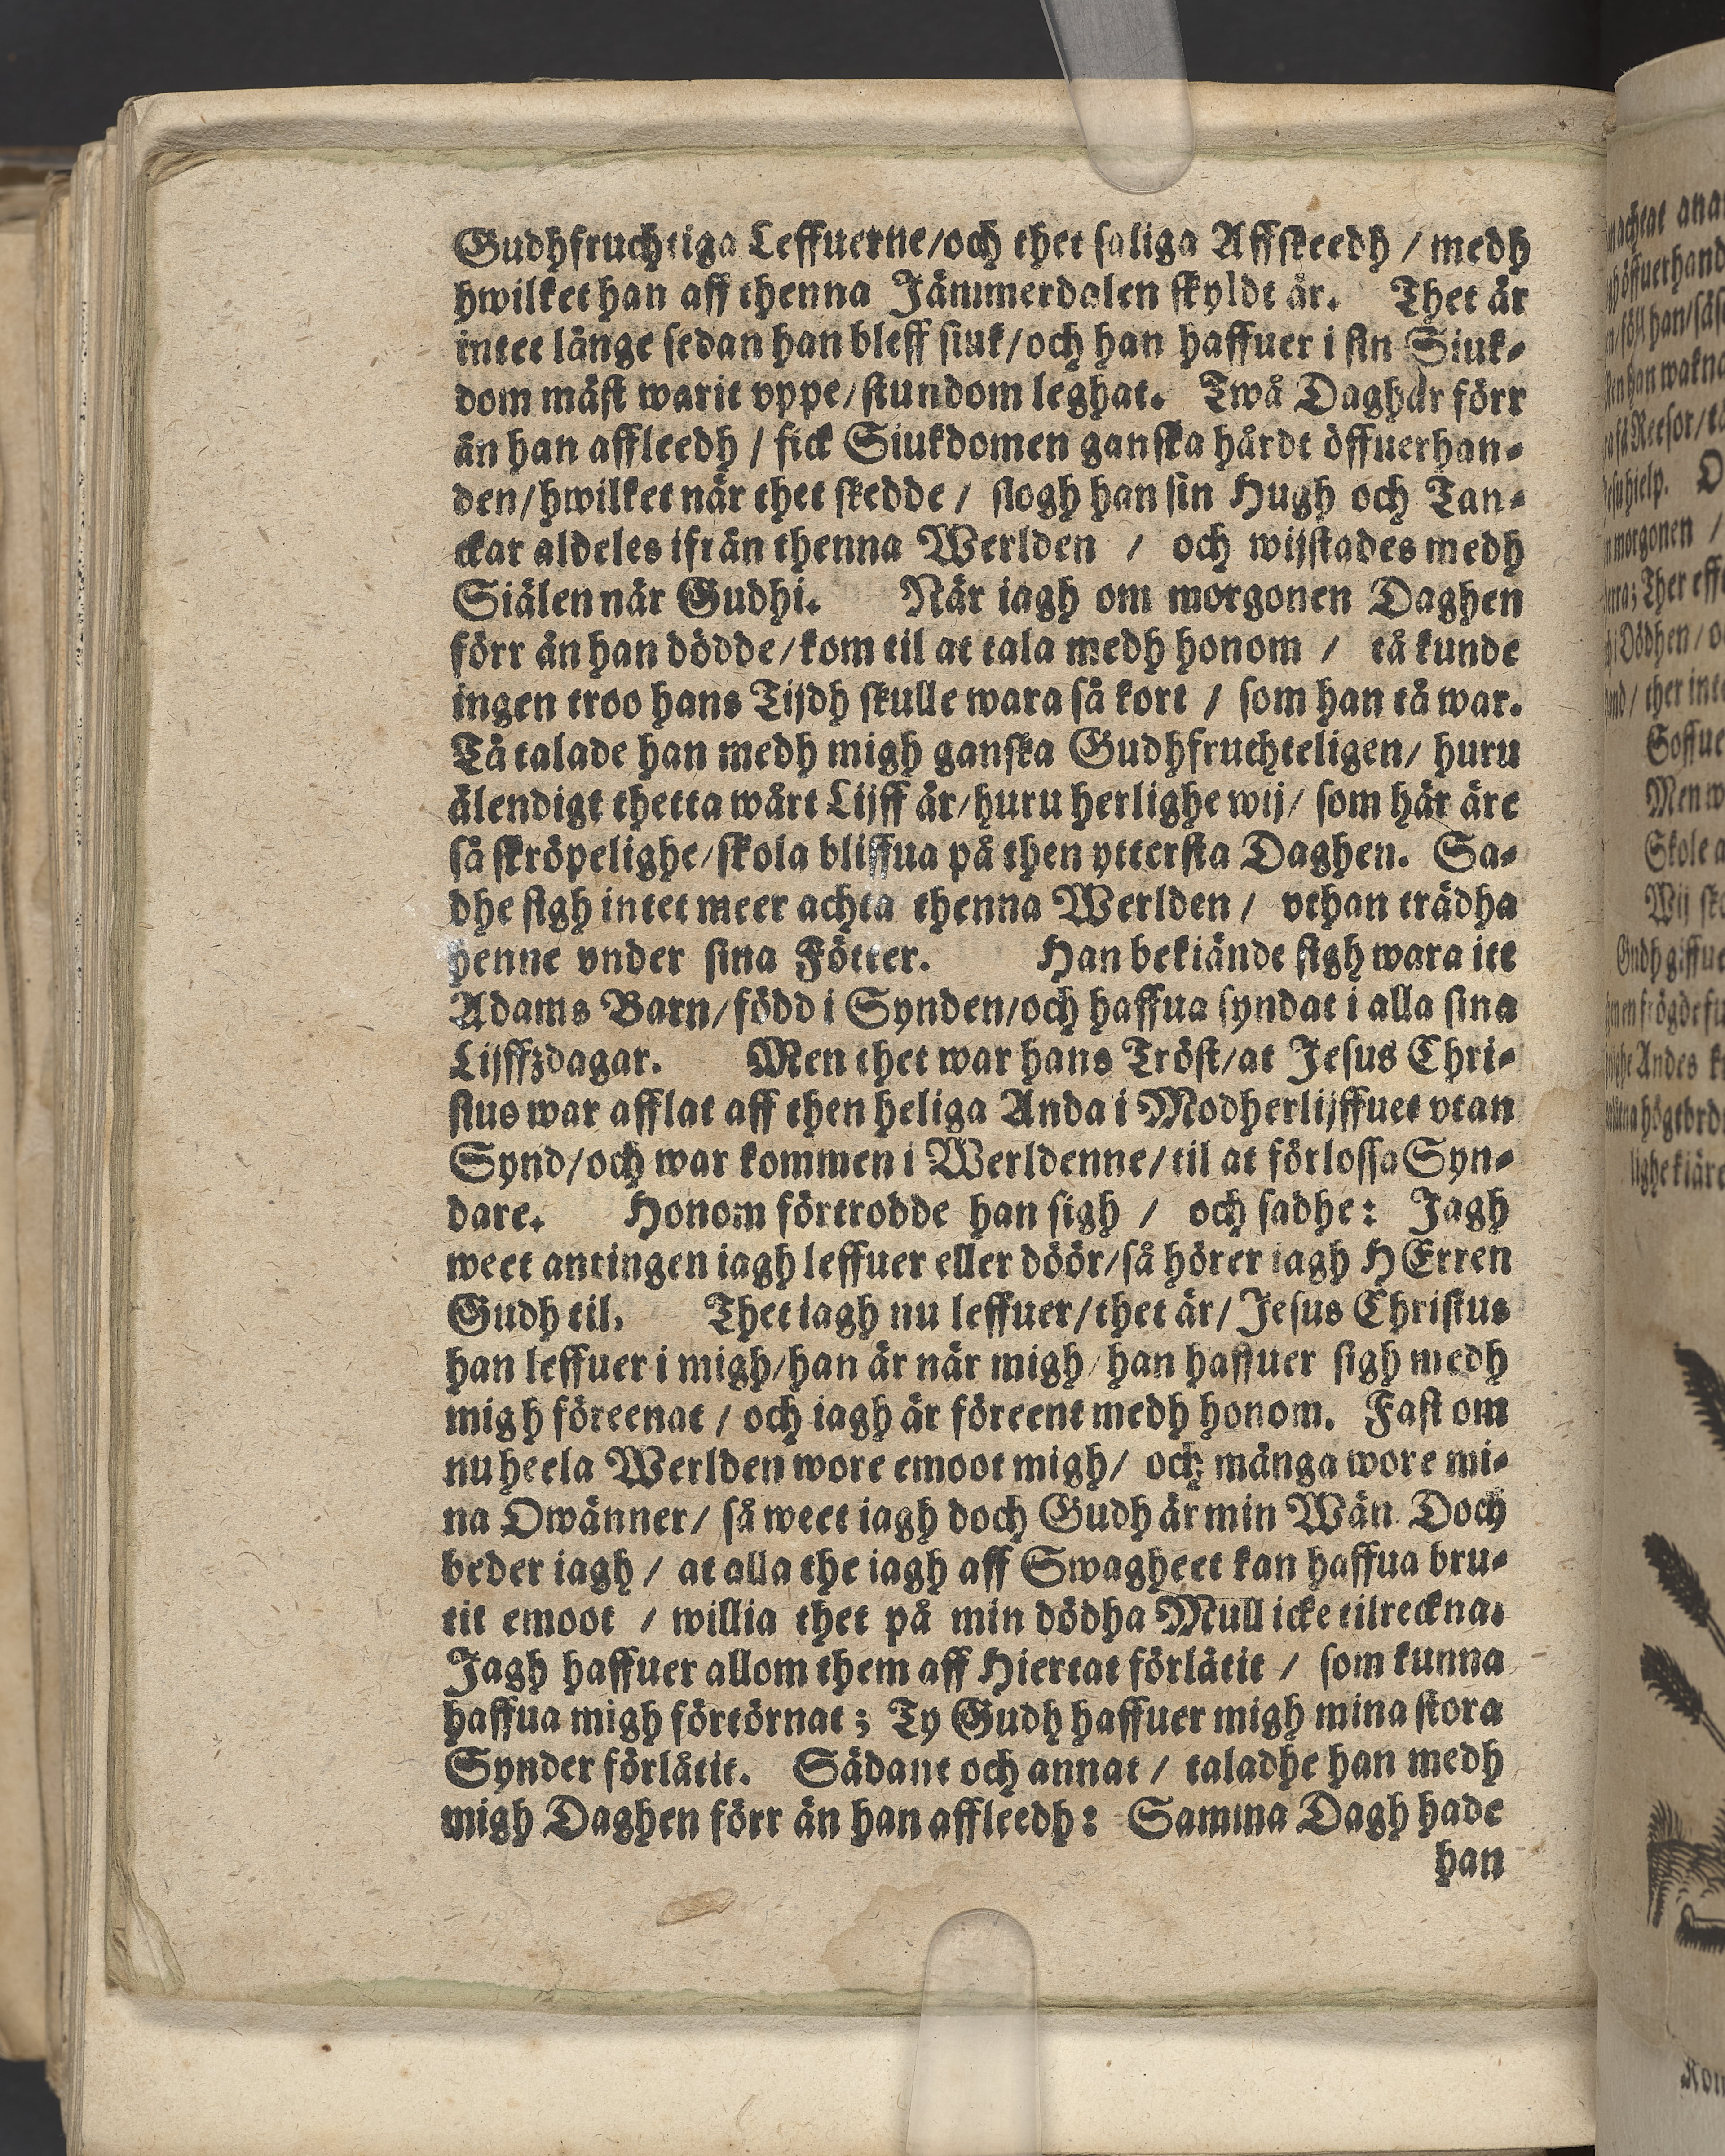 Gudhfruchtiga Leffuerne/och thet saliga Affskeedh / medh
hwilket han aff thenna Jämmerdalen skyldt är. Thet är
intet länge sedan han bleff siuk/och han haffuer i sin Siuk-
dom mäst warit vppe/stundom leghat. Twå Daghar förr
än han affleedh / fick Siukdomen ganska hårdt öffuerhan-
den/hwilket när thet skedde / slogh han sin Hugh och Tan-
ckar aldeles ifrån thenna Werlden / och wijstades medh
Siälen när Gudhi. När iagh om morgonen Daghen
förr än han dödde/kom til at tala medh honom / tå kunde
ingen troo hans Tijdh skulle wara så kort / som han tå war.
Tå talade han medh migh ganska Gudhfruchteligen/ huru
älendigt thetta wårt Lijff är/huru herlighe wij/ som här äre
så skröpelighe/skola bliffua på then yttersta Daghen. Sa-
dhe sigh intet meer achta thenna Werlden / vthan trädha
henne vnder sina Fötter. Han bekiände sigh wara itt
Adams Barn/född i Synden/och haffua syndat i alla sina
Lijffzdagar. Men thet war hans Tröst/at Jesus Chri-
stus war afflat aff then heliga Anda i Modherlijffuet vtan
Synd/och war kommen i Werldenne/til at förlossa Syn-
dare. Honom förtrodde han sigh / och sadhe: Jagh
weet antingen iagh leffuer eller döör/så hörer iagh HErren
Gudh til. Thet iagh nu leffuer/thet är/ Jesus Christus
han leffuer i migh/han är när migh/han haffuer sigh medh
migh föreenat / och iagh är föreent medh honom. Fast om
nu heela Werlden wore emoot migh/ och många wore mi-
na Owänner/ så weet iagh doch Gudh är min Wän. Doch
beder iagh / at alla the iagh aff Swagheet kan haffua bru-
tit emoot / willia thet på min dödha Mull icke tilreckna.
Jagh haffuer allom them aff Hiertat förlåtit / som kunna
haffua migh förtörnat; Ty Gudh haffuer migh mina stora
Synder förlåtit. Sådant och annat / taladhe han medh
migh Daghen förr än han affleedh: Samma Dagh hade
han